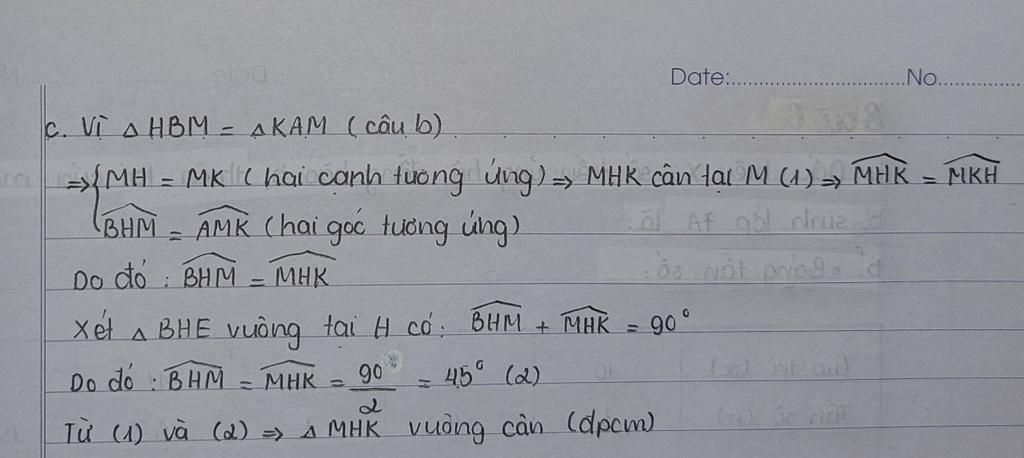 Date:...............................No..............
c. Vì △ HBM = △KAM (câu b)
⇒{MH = MK (hai cạnh tương ứng) ⇒ MHK cân tại M (1) ⇒ MHK = MKH
BHM = AMK (hai góc tương ứng)
Do đó : BHM = MHK
Xét △ BHE vuông tại H có: BHM + MHK = 90°
Do đó : BHM = MHK = 90°/2 = 45° (2)
Từ (1) và (2) ⇒ △ MHK vuông cân (đpcm)